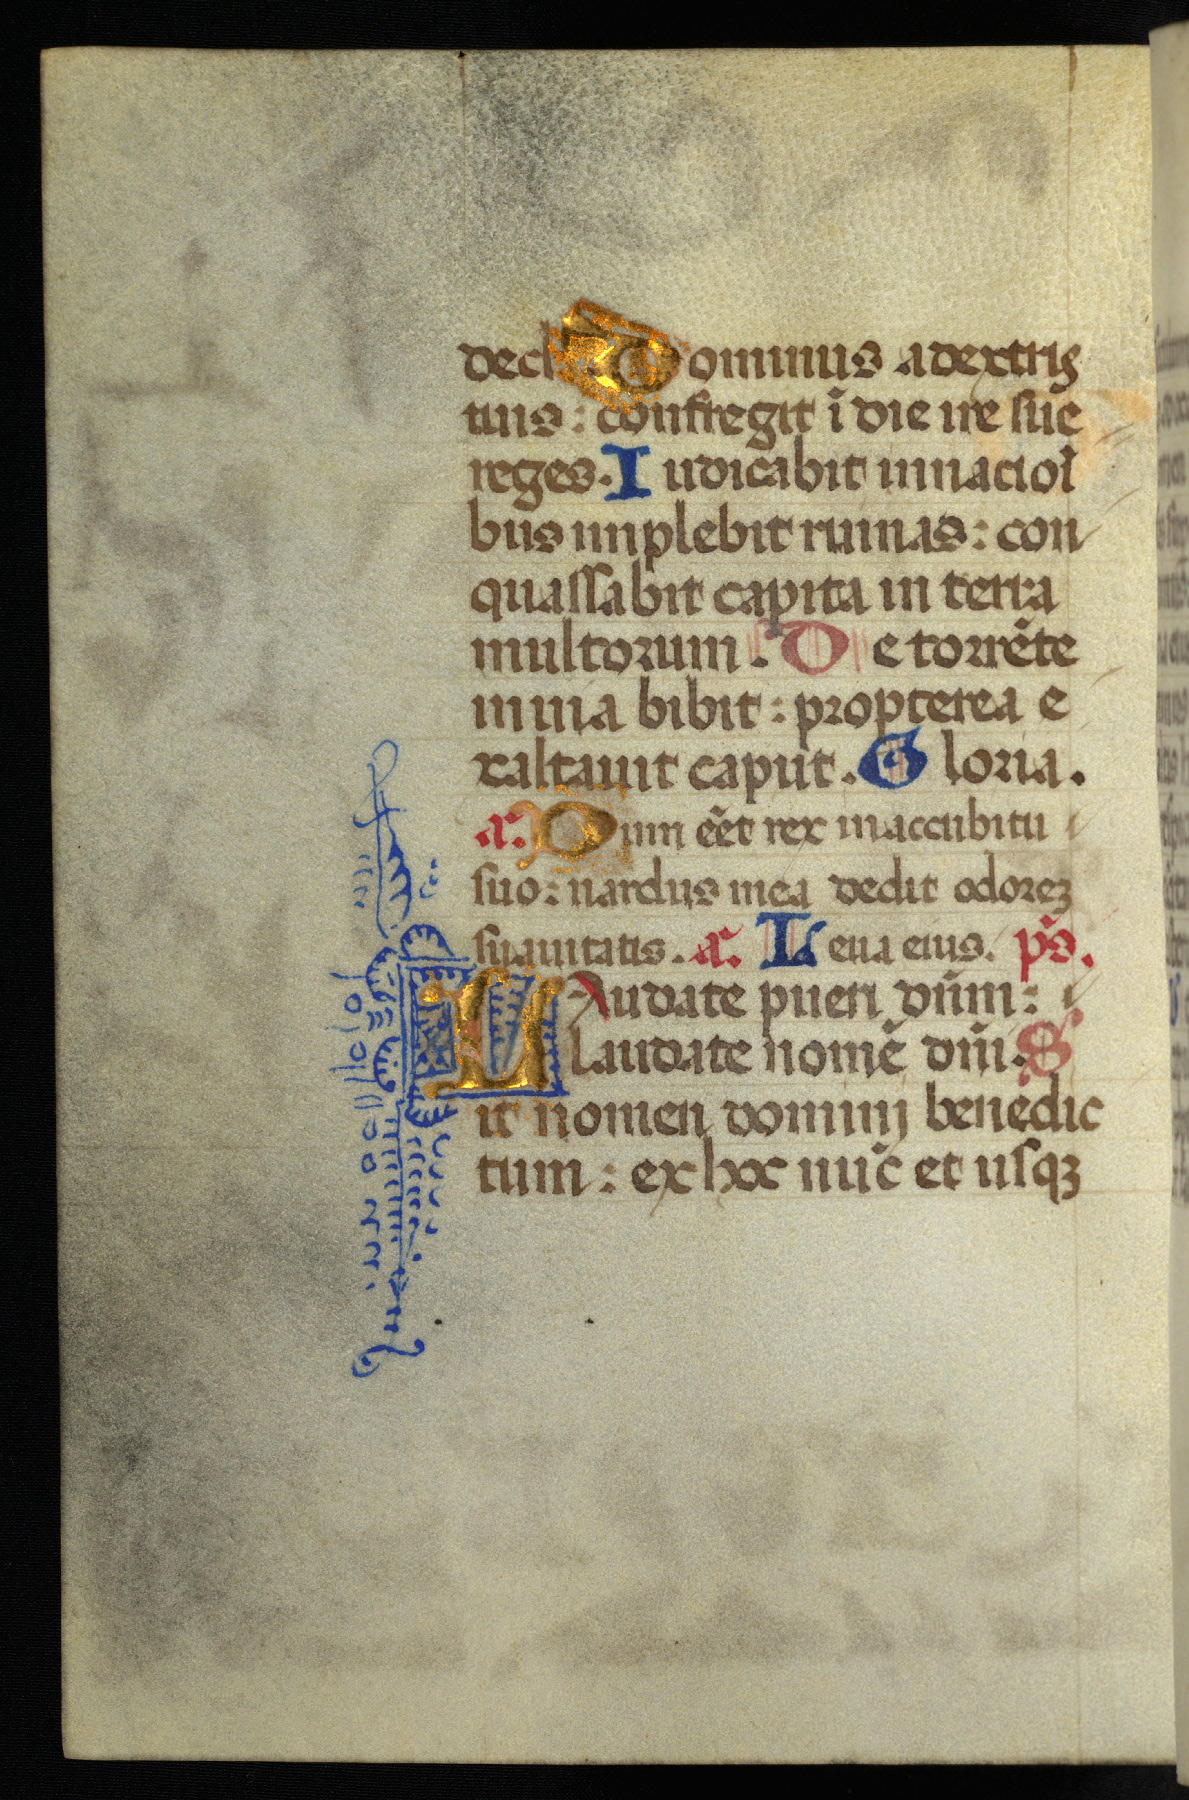 dech. Dominus a dextris
tuis: confregit ī die ire sue
reges. Iudicabit in nacioī
bus implebit ruinas: con
quassabit capita in terra
multorum. De torrēte
in uia bibit: propterea e
xaltauit caput. Gloria.
a. Dum eēt rex in accubitu
suo: nardus mea dedit odoreꝫ
suauitatis. a. Leua eius. ps.
LAudate pueri dn̄m:
laudate nomē dn̄i. S
it nomen domini benedic
tum: ex hoc nūc et usqꝫ